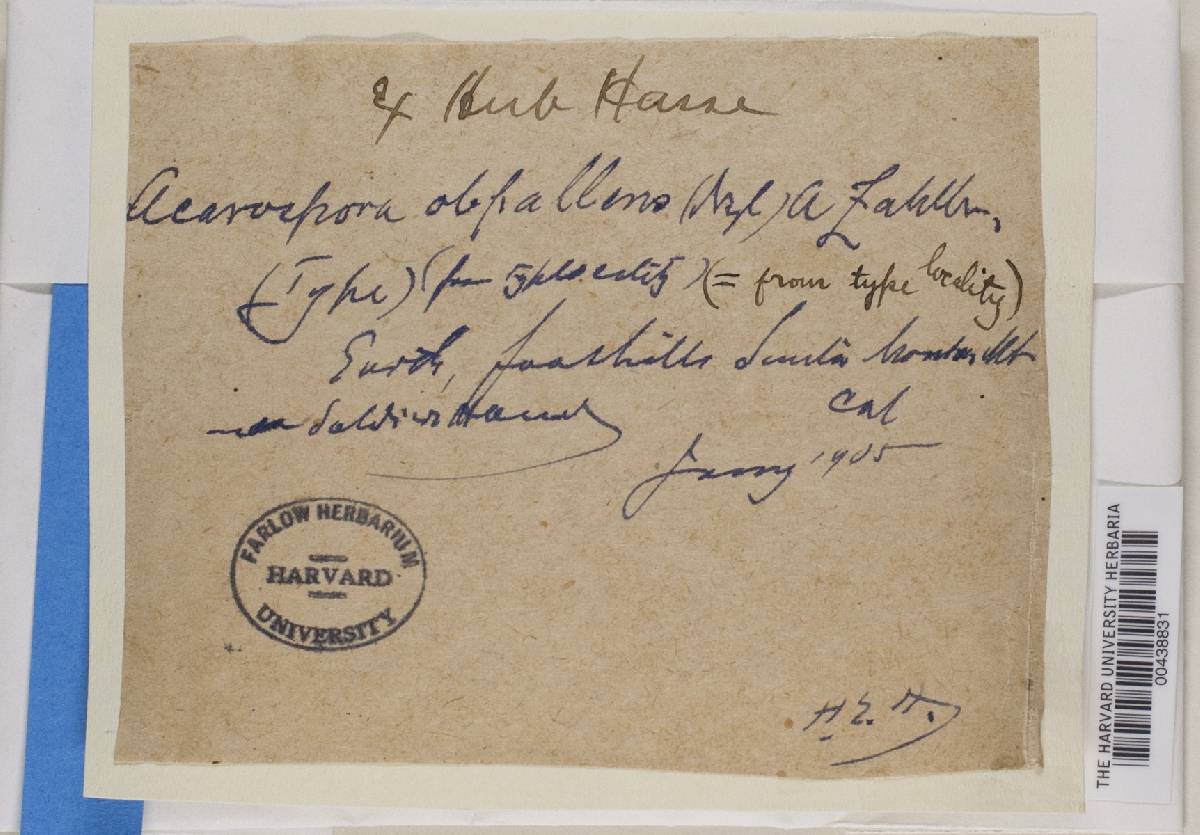 Ex Herb Hasse
Acarospora obpallens (Nyl) A Zahlbr.,
(Type) (from type locality) (= from type locality)
Earth, foothills Santa Monica Mt
near Soldiers Home Cal
Jany 1905
FARLOW HERBARIUM
HARVARD
UNIVERSITY
H. E. H.
THE HARVARD UNIVERSITY HERBARIA
00438831